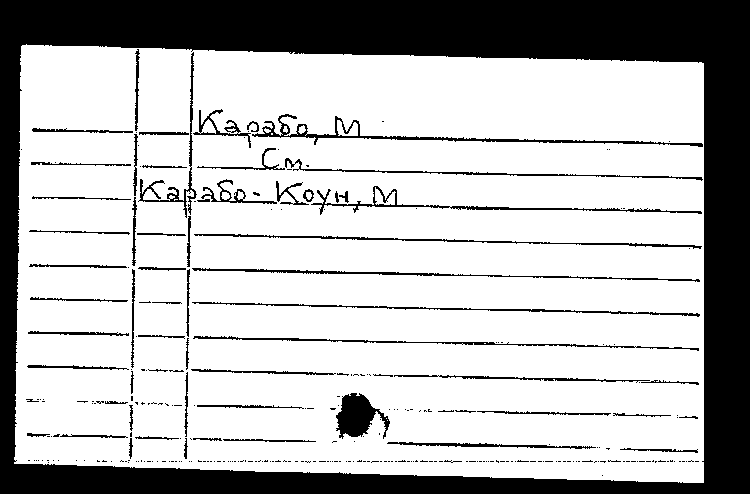 Карабо, М
См.
Карабо- Коун, М